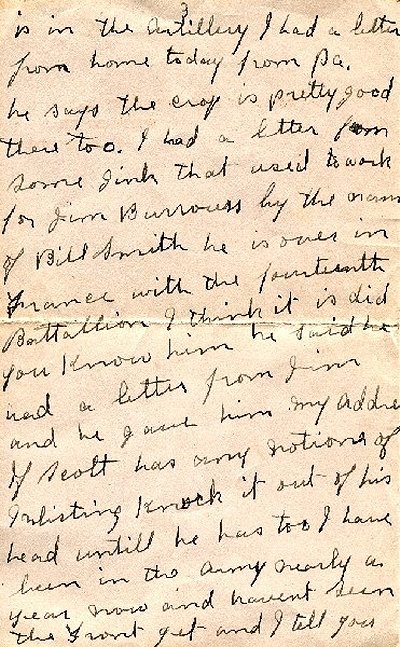 3
is in the artillery I had a letter
from home today from Pa.
he says the crop is pretty good
there too. I had a letter from
some gink that used to work
for Jim Burrows by the name
of Bill Smith he is over in
France with the fourteenth
Battallion I think it is did
you know him he said he
had a letter from Jim
and he gave him my addre
If Scott has any notions of
Inlisting knock it out of his
head untill he has too I have
been in the army nearly a
year now and havent seen
the Front yet and I tell you